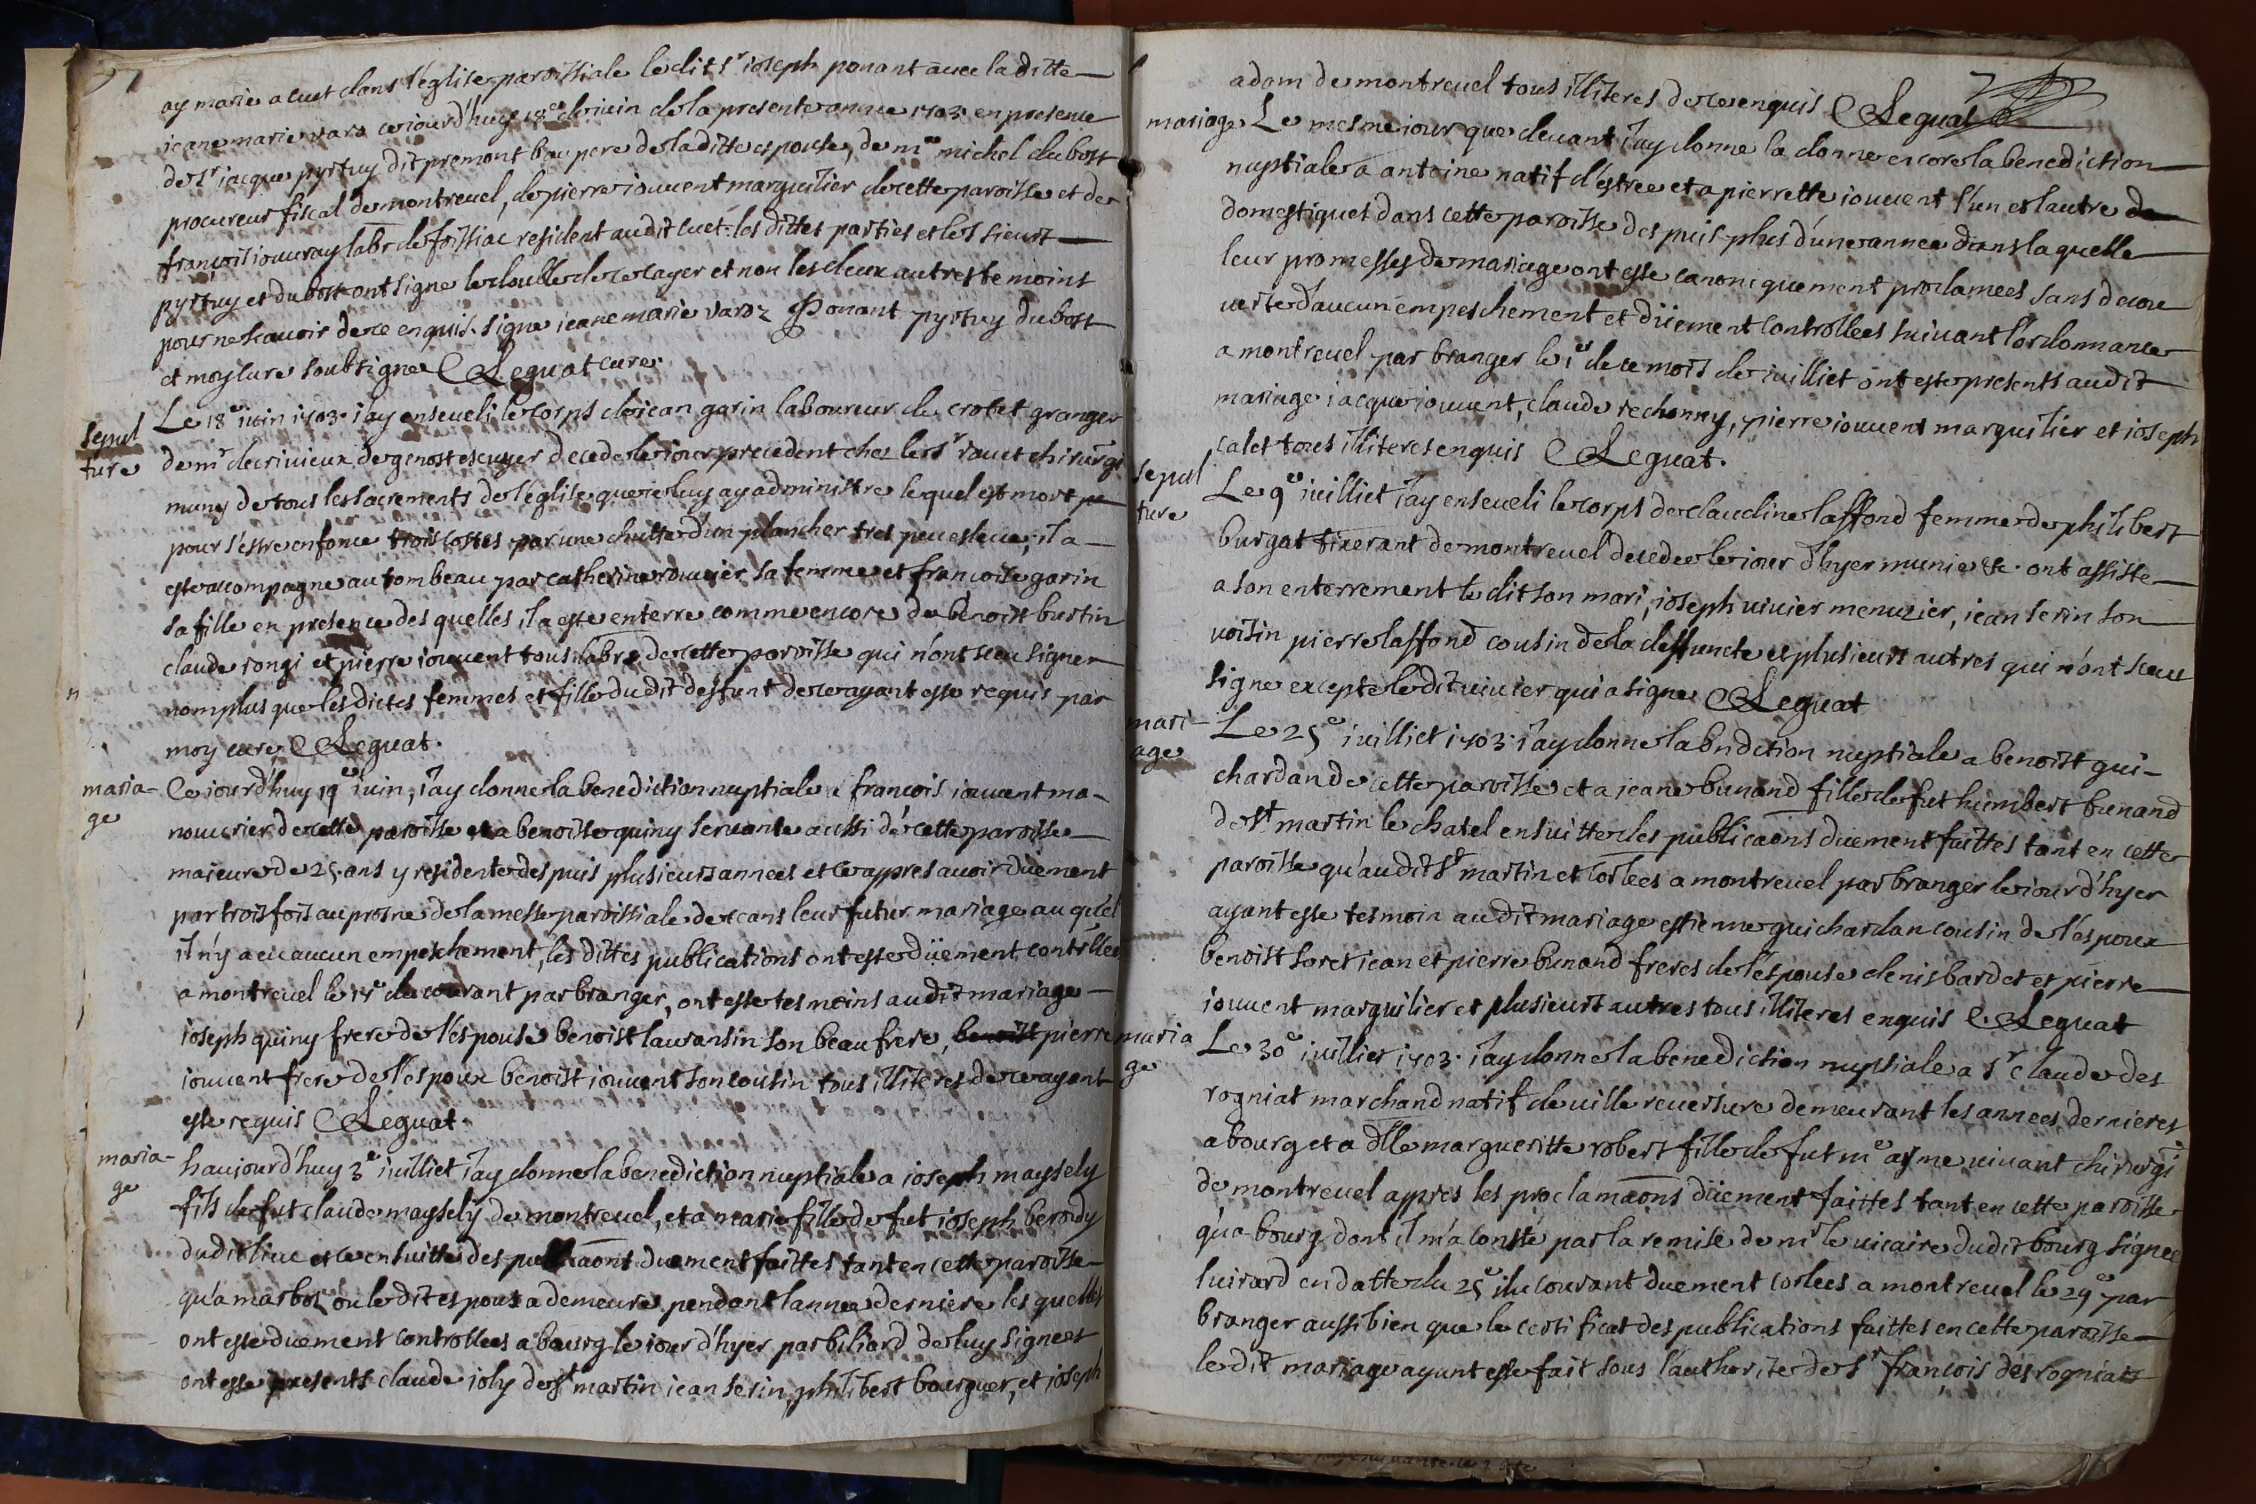 ay marie a cuet dans l'eglise paroissiale ledit sr ioseph ponant avec la ditte
ieane marie varo ce iourd'huy 18e de iuin de la presente annee 1703 en presence
de sr iacque pyrtuy dit premont beau pere de la ditte espouse, de me michel dubost
procureur fiscal de montrevel, de pierre iouvent marguilier de cette paroisse et de
francois iouvray labr de foissiac resident audit cuet. les dittes parties et les sieurs
pyrtuy et dubost ont signe le double de ce cayer et non les deux autres temoins
pour ne scavoir de ce enquis. signe ieane marie varoz Ponant pyrtuy dubost
et moy cure soubsigne Leguat cure.
sepul
ture
Le 18e iuin 1703. i'ay enseveli le corps de iean garin laboureur du crotet granger
de mr de crivieux de genost escuyer decede le iour precedent chez le sr ravet chirurgi
muny de tous les sacrements de l'eglise que ie luy ay administre lequel est mort pe
pour s'estre enfonce trois costes par une chutte d'un plancher tres peu esleve, il a
este accompagne au tombeau par catherine rouvier sa femme et francoise garin
sa fille en presence des quelles il a este enterre comme encore de benoist burtin
claude rongi et pierre iouvent tous labrs de cette paroisse qui n'ont sceu signer
nomplus que les dictes femmes et fille du dit deffunt de ce ayant este requis par
moy cure Leguat.
maria-
ge
Ce iourd'huy 19e iuin, i'ay donne la benediction nuptiale a francois iouvent ma-
nouvrier de cette paroisse et a benoiste quiny servante aussi de cette paroisse
maieure de 25. ans y residente des puis plusieurs annees et ce appres avoir duement
par trois fois au prosne de la messe paroissiale de ceans leur futur mariage au quel
il n'y a eu aucun empeschement, les dittes publications ont este düement contrllees
a montrevel le 15e du courant par branger, ont este tesmoins au dit mariage
ioseph quiny frere de l'espouse benoist lauransin son beau frere, benoist pierre
iouvent frere de l'espoux benoist iouvent son cousin tous illiteres de ce ayant
este requis Leguat.
maria-
ge
h aujourd'huy 3e iuilliet i'ay donne la benediction nuptiale a ioseph maysely
fils de fut claude maysely de montrevel, et a marie fille de fut ioseph berody
dudit lieu et ce ensuitte des publicaons duement faittes tant en cette paroisse
qu'a marboz ou le dit espoux a demeure pendant l'annee derniere les quelles
ont este duement controllees a bourg le iour d'hyer par biliard de luy signees
ont este presents claude ioly de st martin iean serin, philibert bourguer, et ioseph
adam de montrevel tous illiteres de ce enquis Leguat
mariage
Le mesme iour que devant i'ay donne la donne encore la benediction
nuptiale a antoine natif d'estree et a pierrette iouvent l'un et l'autre de
domestiques dans cette paroisse des puis plus d'une annee dans la quelle
leur promesses de mariage ont este canoniquement proclamees sans decou
verte d'aucun empeschement et düement controllees suivant l'ordonnance
a montrevel par branger le 1er de ce mois de iuilliet ont este presents au dit
mariage iacque iouvent, claude rechonny, pierre iouvent marguilier et ioseph
calet tous illiteres enquis Leguat.
sepul
ture
Le 9e iuilliet i'ay enseveli le corps de claudine laffond femme de philibert
burgat tixerant de montrevel decedee le iour d'hyer munie &c. ont assiste
a son enterrement le dit son mari, ioseph vivier menuzier, iean serin son
voisin pierre laffond cousin de la deffuncte et plusieurs autres qui n'ont sceu
signe excepte le dit vivier qui a signe Leguat
mari-
age
Le 25e iuilliet 1703. i'ay donne la bndiction nuptiale a benoist gui-
chardan de cette paroisse et a ieane bunand fille de fut humbert bunand
de st martin le chatel ensuitte des publicaons duement faittes tant en cette
paroisse qu'au dit st martin et corlees a montrevel par branger le iour d'hyer
ayant este tesmoin au dit mariage estienne guichardan cousin de l'espoux
benoist soret iean et pierre bunand freres de l'espouse denis bardet et pierre
iouvent marguilier et plusieurs autres tous illiteres enquis Leguat
maria
ge
Le 30e iuilliet 1703. i'ay donne la benediction nuptiale a sr claude des
rogniat marchand natif de ville reversure demeurant les annees dernieres
a bourg et a dlle margueritte robert fille de fut me ayme vivant chirurgi
de montrevel appres les proclamaons düement faittes tant en cette paroisse
qu'a bourg dont il m'a consté par la remise de mr le vicaire du dit bourg signee
luirard en datte du 25e du courant duement corlees a montrevel le 29e par
branger aussi bien que le certificat des publications faittes en cette paroisse
le dit mariage ayant este fait sous l'authorite de sr françois des rogniat